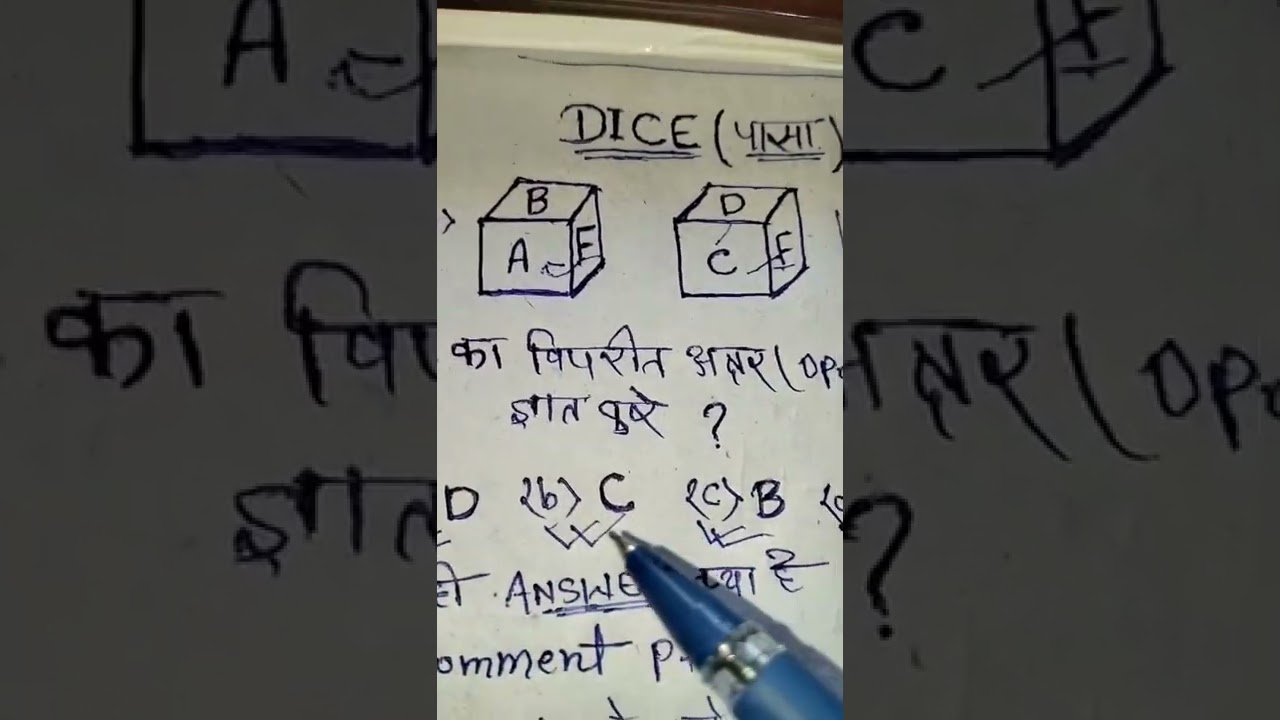 DICE (पासा)
B
A
E
D
C
E
का विपरीत अक्षर (OPP
ज्ञात करे ?
D (b) C (c) B
ANSWER क्या है
omment